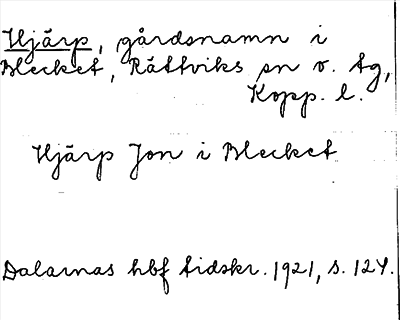 Hjärp, gårdsnamn i
Blecket, Rättviks sn o. tg,
Kopp. l.
Hjärp Jon i Blecket
Dalarnas hbf tidskr. 1921, s. 124.